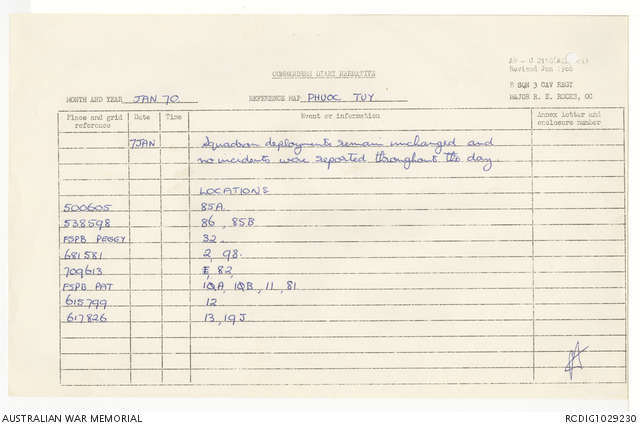 COMMANDERS DIARY NARRATIVE
Revised Jan 1966
B SQN 3 CAV REGT
MONTH AND YEAR JAN 70 REFERENCE MAP PHUOC TUY MAJOR R. E. ROOKS, OC
Place and grid reference Date Time Event or information Annex letter and enclosure number
7JAN Squadron deployments remain unchanged and
no incidents were reported throughout the day.
LOCATIONS
500605 85A
538598 86, 85B
FSPB PEGGY 32
681581 2, 98.
709613 82,
FSPB PAT 1QA, 1QB, 11, 81
615799 12
617826 13, 19J
AUSTRALIAN WAR MEMORIAL RCDIG1029230